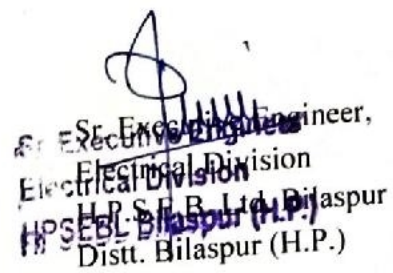 Sr. Executive Engineer,
Electrical Division
H.P.S.E.B. Ltd. Bilaspur
Distt. Bilaspur (H.P.)
Sr. Executive Engineer
Electrical Division
HPSEBL Bilaspur (H.P.)